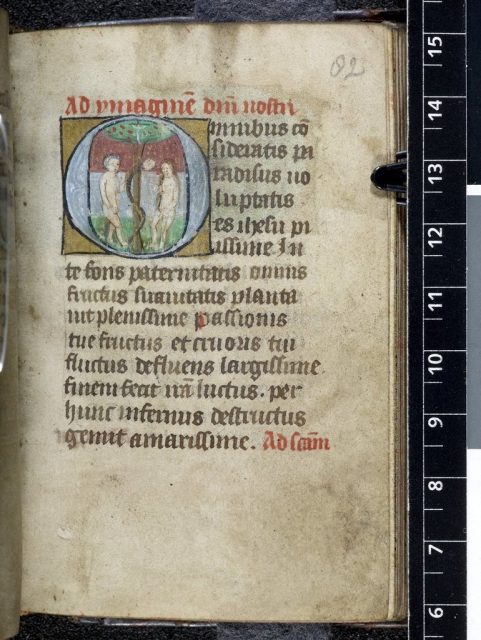 82
Ad ymaginē dn̄i nostri
Omnibus cō
sideratis pa
radisus uo
luptatis
es ihesu pi
issime In
te fons paternitatis omnis
fructus suauitatis planta
uit plenissime passionis
tue fructus et cruoris tui
fluctus defluens largissime
finem fecit luctus. per
hunc infernus destructus
gemit amarissime. Ad scām
15
14
13
12
11
10
9
8
7
6